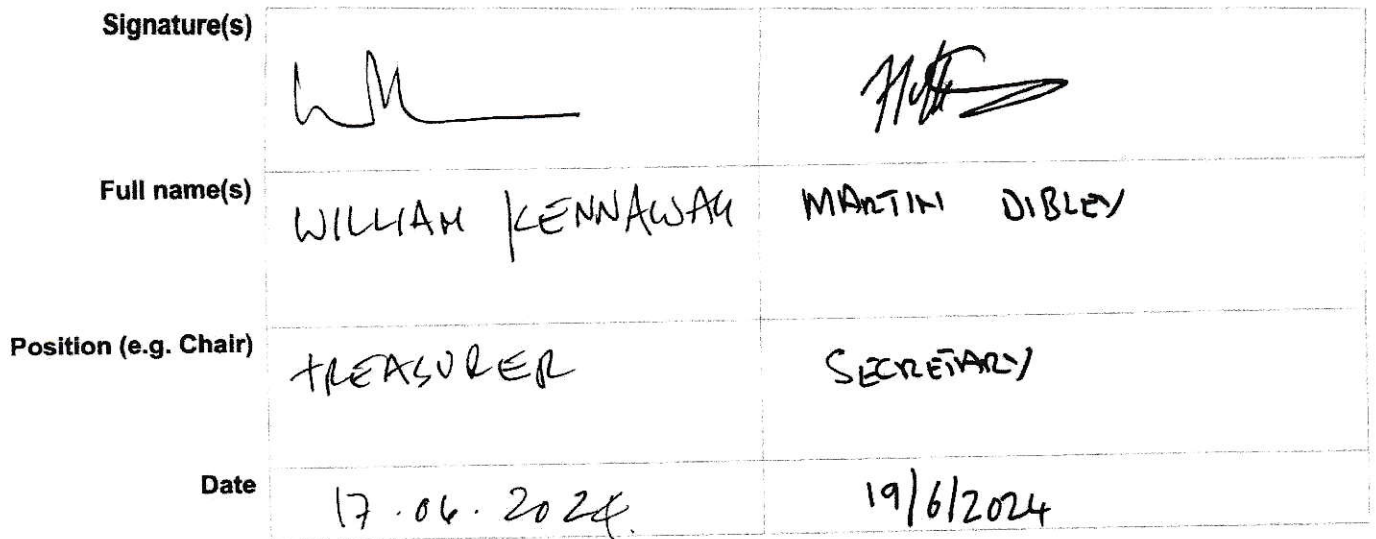 Signature(s)
Full name(s) WILLIAM KENNAWAY MARTIN DIBLEY
Position (e.g. Chair) TREASURER SECRETARY
Date 17.06.2024. 19/6/2024